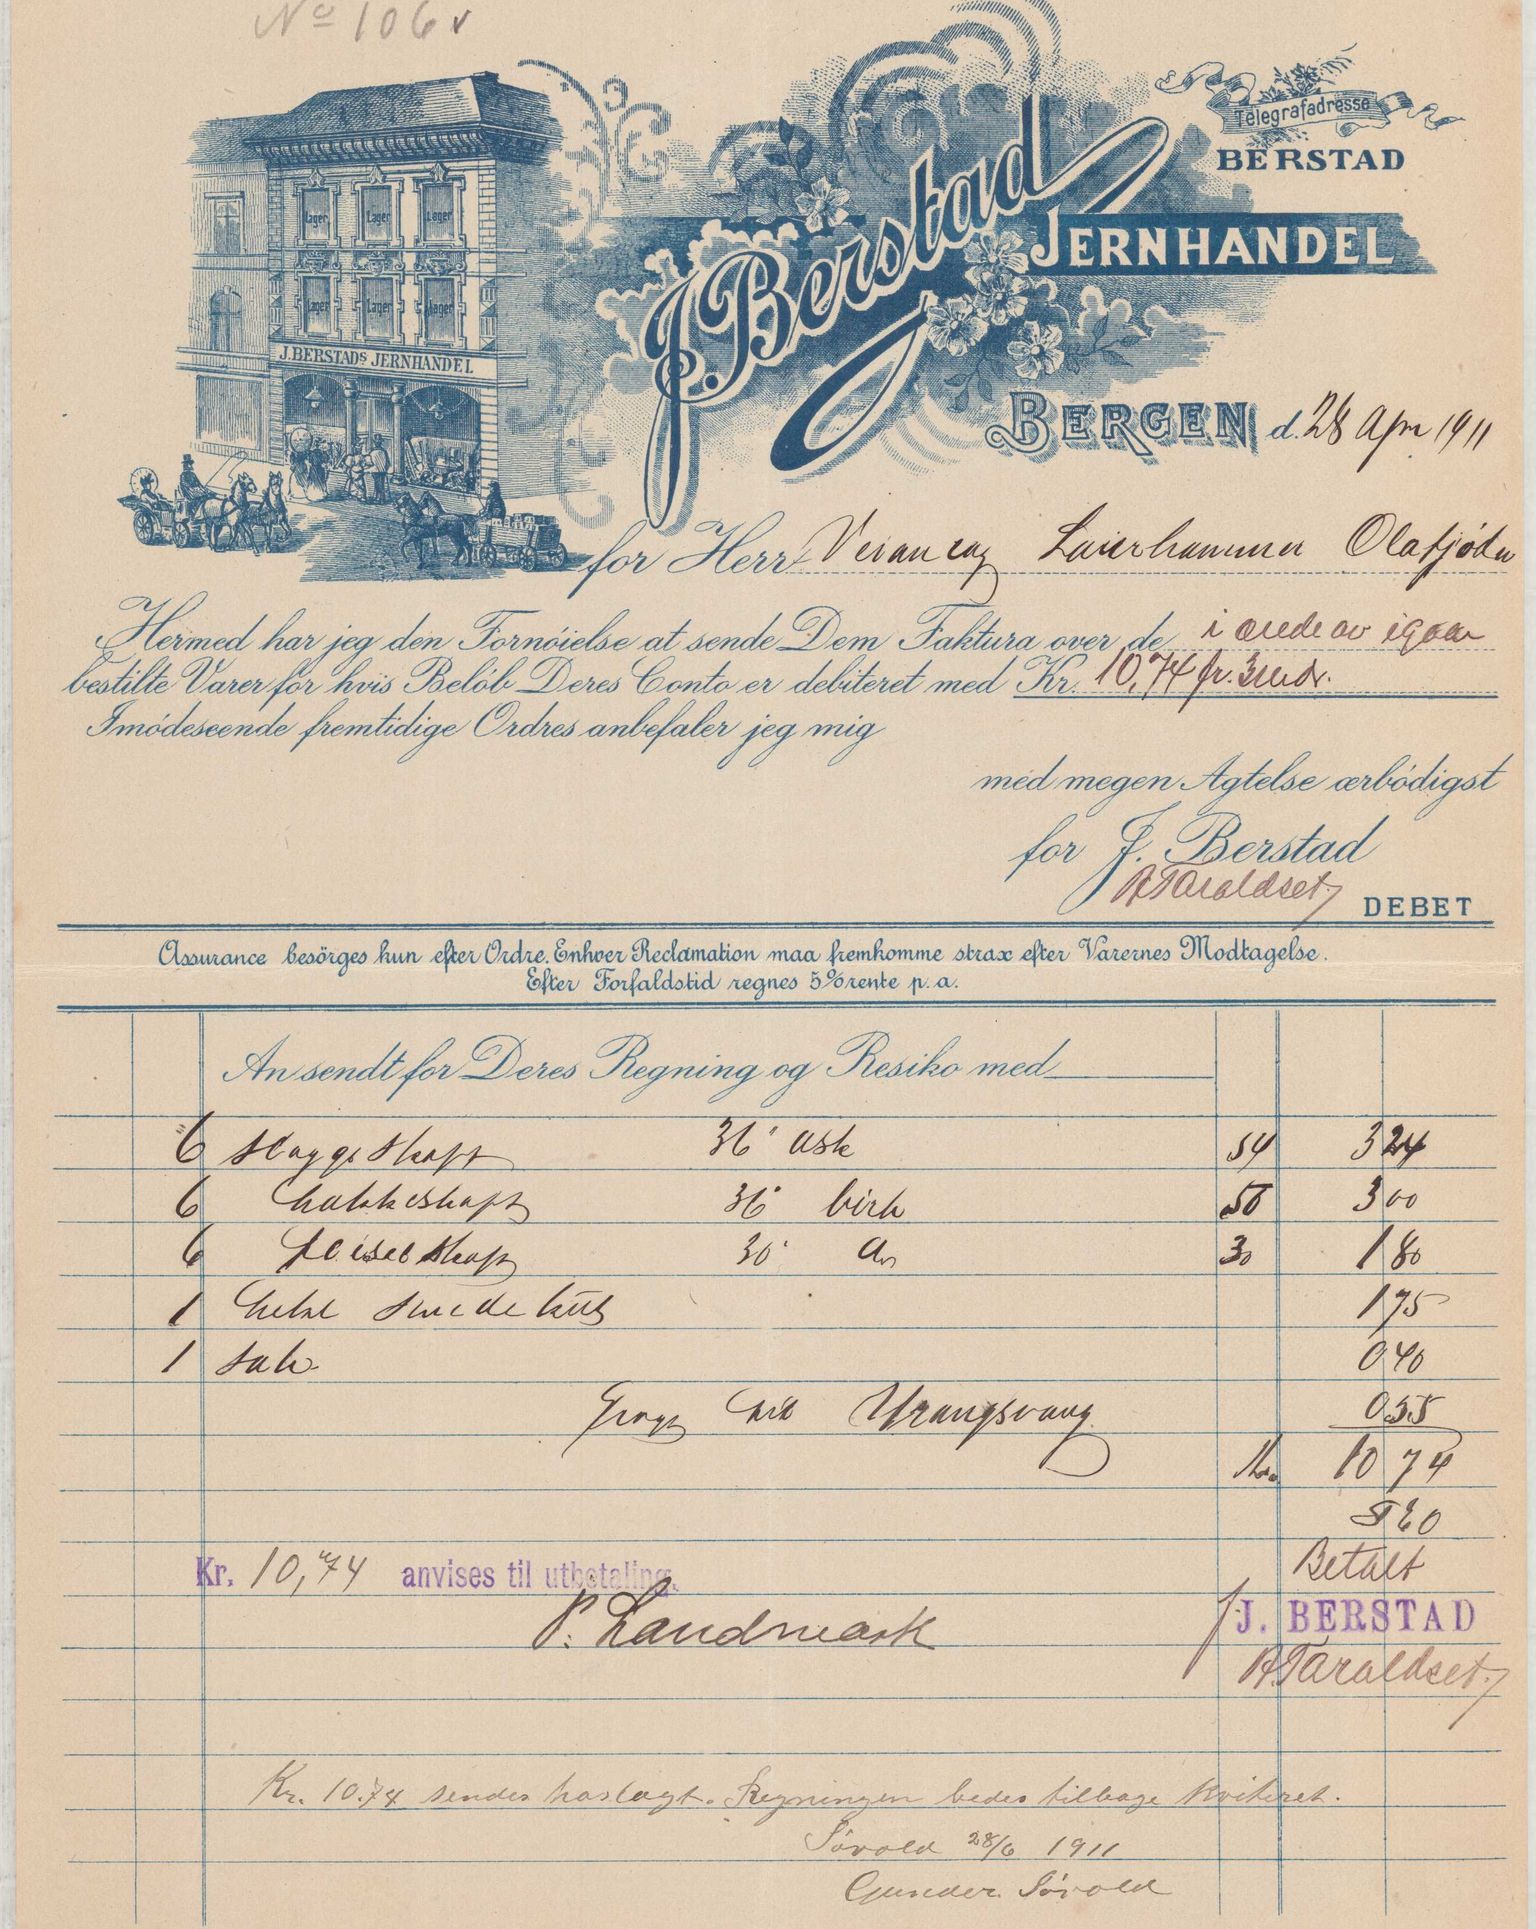 No 106
Telegrafadresse
BERSTAD
J. Berstad
JERNHANDEL
Lager Lager Lager
Lager Lager Lager
J. BERSTADS JERNHANDEL
BERGEN d. 28 Apr 1911
for Herr
Hermed har jeg den Fornöielse at sende Dem Faktura over de i
bestilte Varer for hvis Belöb Deres Conto er debiteret med Kr. 10,74 pr. 3 mdr.
Imödeseende fremtidige Ordres anbefaler jeg mig
med megen Agtelse ærbödigst
for J. Berstad
Taraldset
DEBET
Assurance besörges kun efter Ordre. Enhver Reclamation maa fremkomme strax efter Varernes Modtagelse.
Efter Forfaldstid regnes 5% rente p. a.
An sendt for Deres Regning og Resiko med
6 36" ask 54 3 24
6 hakkeskaft 36" birk 50 3 00
6 30" do 30 1 80
1 1 75
1 sæk 0 40
0 55
Kr. 10 74
Kr. 10,74 anvises til utbetaling.
Betalt
P. Landmark
J. BERSTAD
Taraldset
Kr. 10.74 sendes Regningen bedes tilbage kviteret.
Sövold 28/6 1911
Gunder Sövold